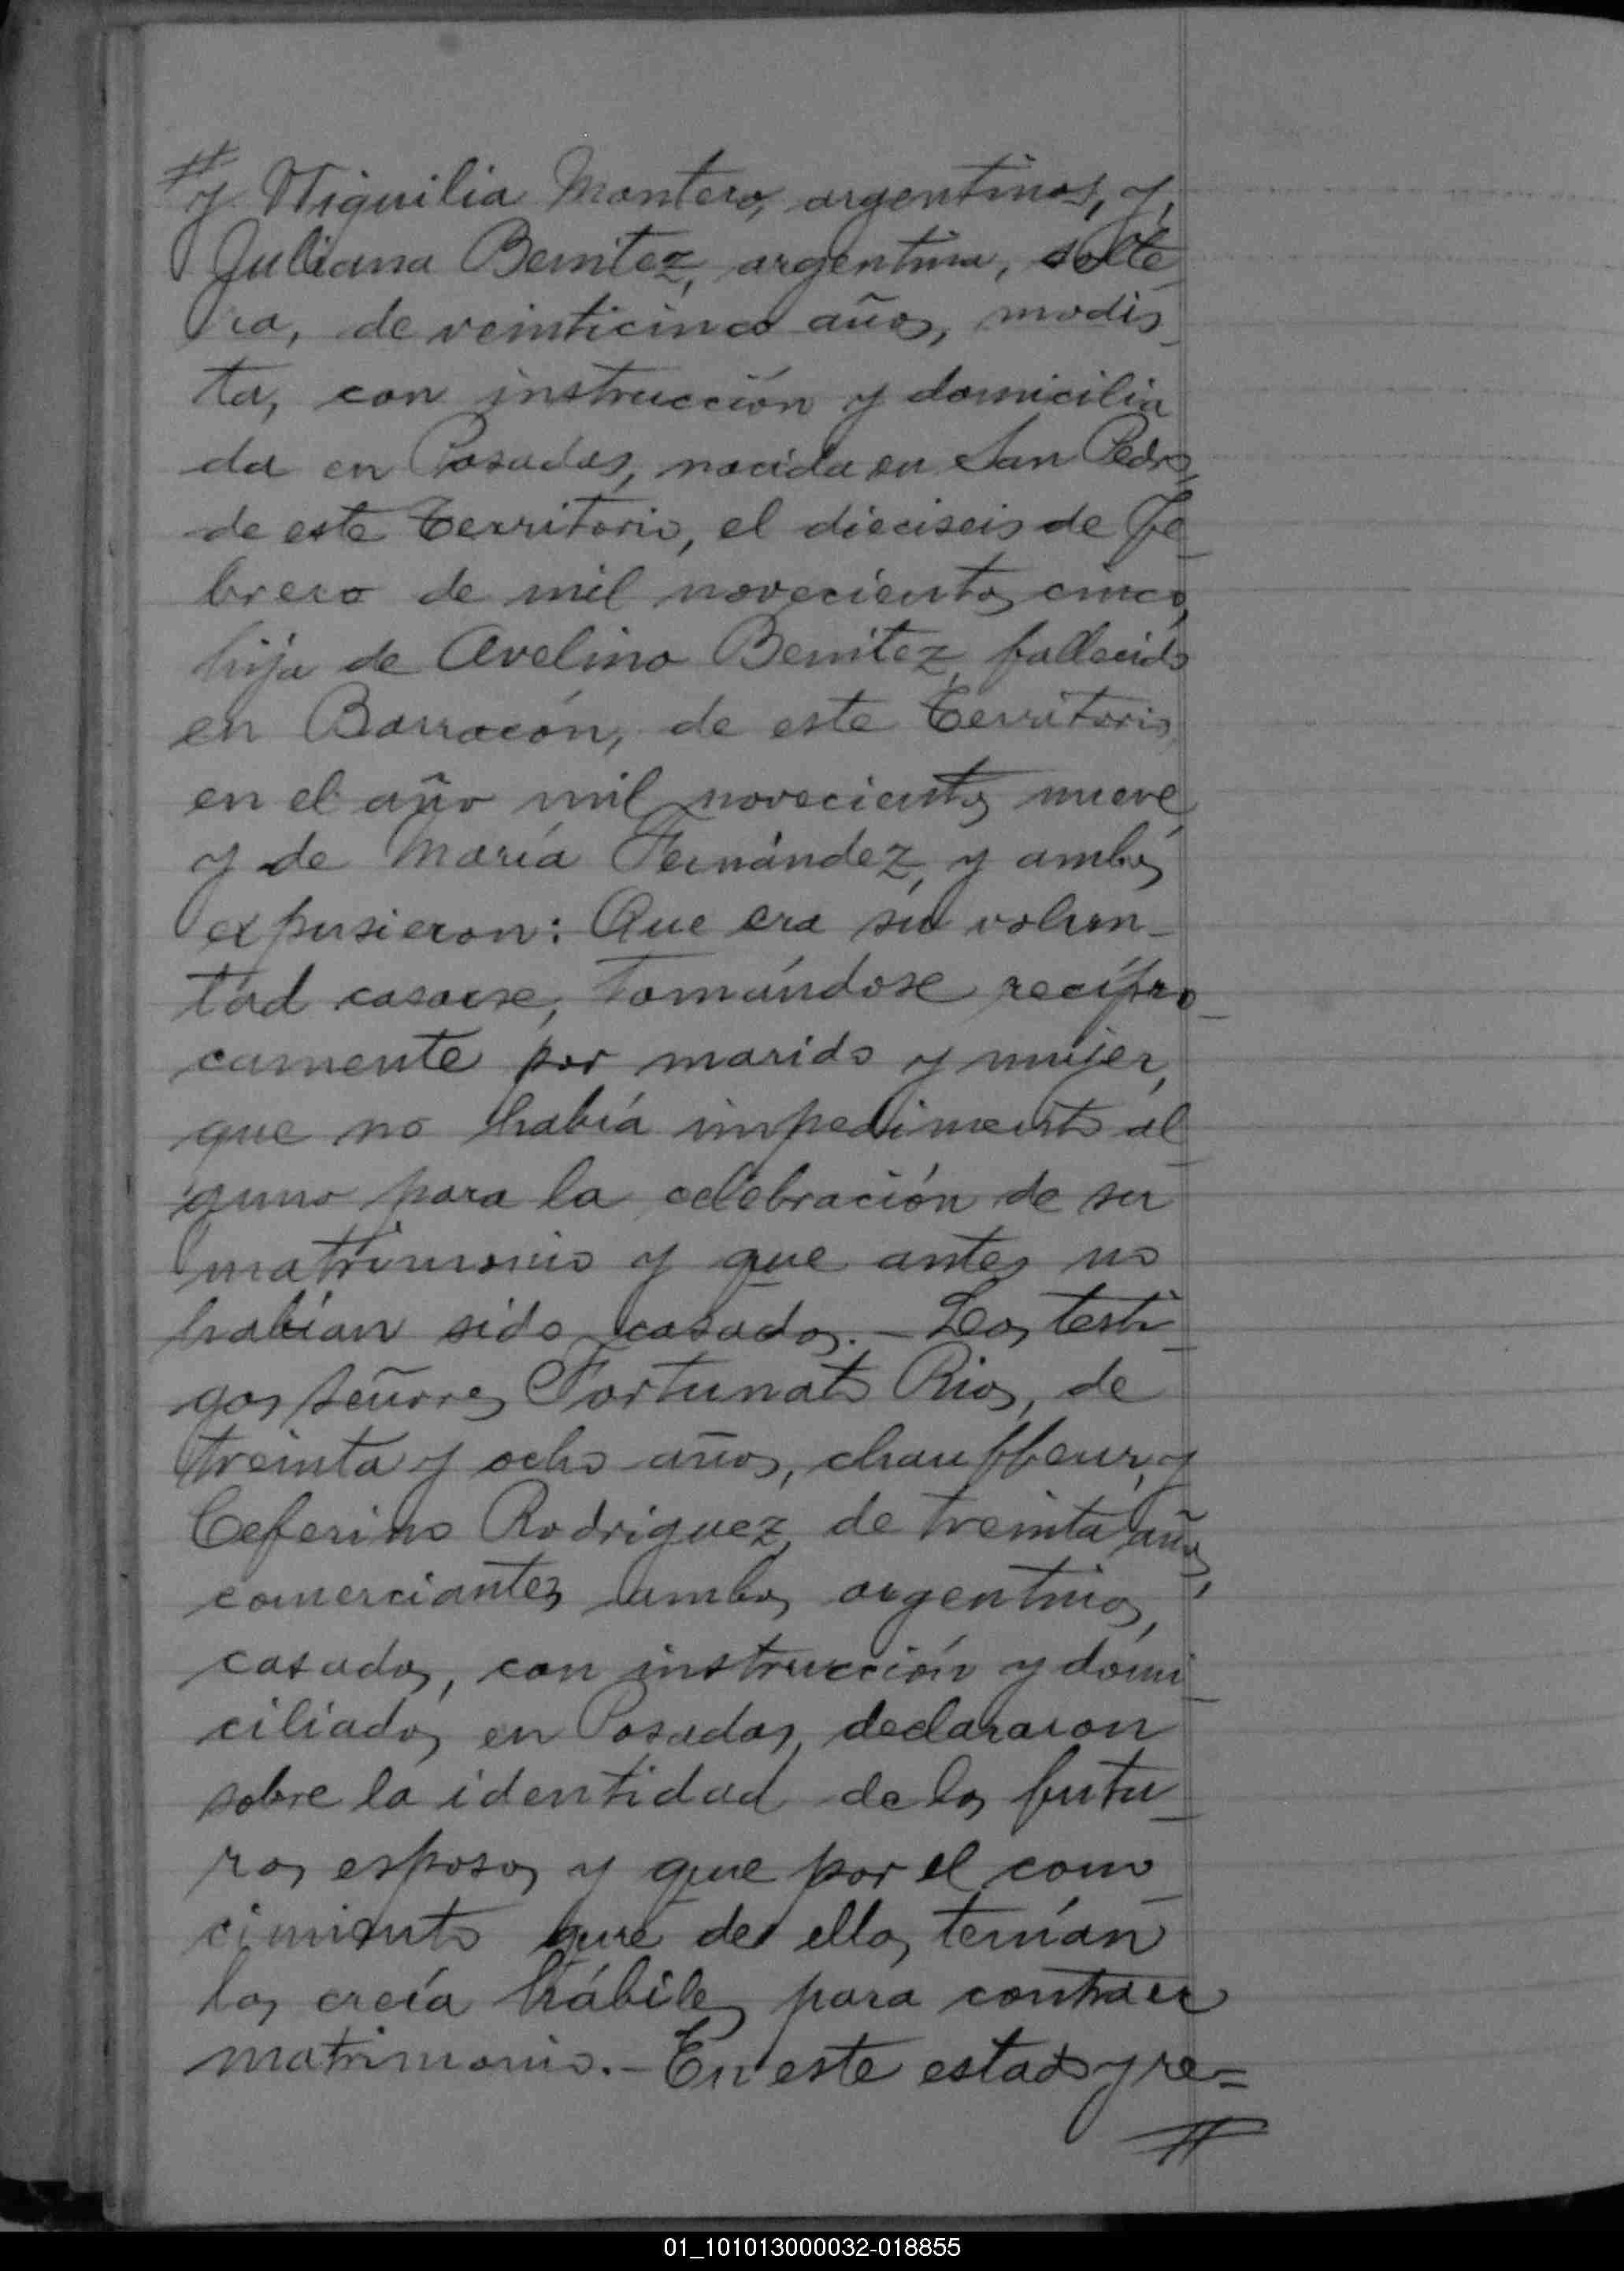 # y Niquilia Montero, argentinos, y,
Juliana Benitez, argentina, solte
ra, de veinticinco años, modis_
ta, con instrucción y domicilia
da en Posadas, nacida en San Pedro,
de este Territorio, el dieciseis de Fe_
brero de mil novecientos cinco,
hija de Avelino Benitez, fallecido
en Barracón, de este Territorio,
en el año mil novecientos nueve,
y de María Fernández, y ambos
expusieron: Que era su volun_
tad casarse, tomándose recípro_
camente por marido y mujer,
que no había impedimento al_
guno para la celebración de su
matrimonio y que antes no
habían sido casados.- Los testi_
gos señores Fortunato Rios, de
treinta y ocho años, chauffeur, y
Ceferino Rodriguez, de treinta años,
comerciantes ambos argentinos,
casados, con instrucción y domi_
ciliados en Posadas, declararon
sobre la identidad de los futu_
ros esposos y que por el cono_
cimiento que de ellos tenían
los creía hábiles para contraer
matrimonio.- En este estado y re=
#
01_101013000032-018855